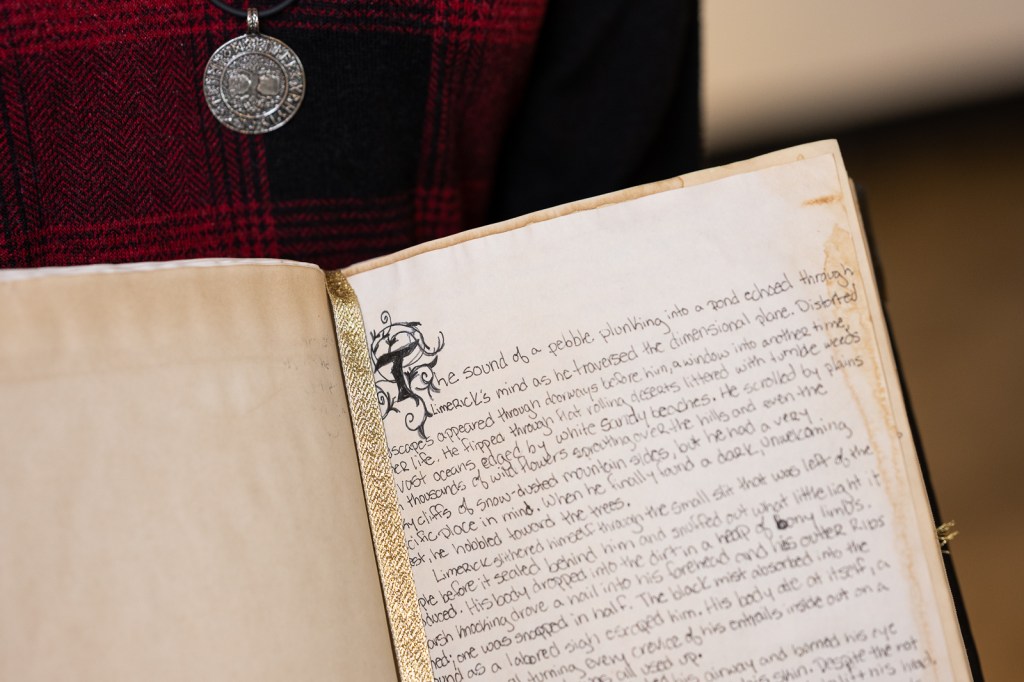 The sound of a pebble plunking into a pond echoed through
Limerick's mind as he traversed the dimensional plane. Distorted
scapes appeared through doorways before him, a window into another time,
her life. He flipped through flat rolling deserts littered with tumble weeds
vast oceans edged by white sandy beaches. He scrolled by plains
thousands of wild flowers sprouting over the hills and even the
cliffs of snow-dusted mountain sides, but he had a very
cific place in mind. When he finally found a dark, unwelcoming
est, he hobbled toward the trees.
Limerick slithered himself through the small slit that was left of the
before it sealed behind him and snuffed out what little light it
duced. His body dropped into the dirt in a heap of bony limbs.
arsh knocking drove a nail into his forehead and his outer ribs
ned; one was snapped in half. The black mist absorbed into the
und as a labored sigh escaped him. His body ate at itself, a
turning every crevice of his entrails inside out on a
call used up.
his airway and burned his eye
skin. Despite the rot
lift his head